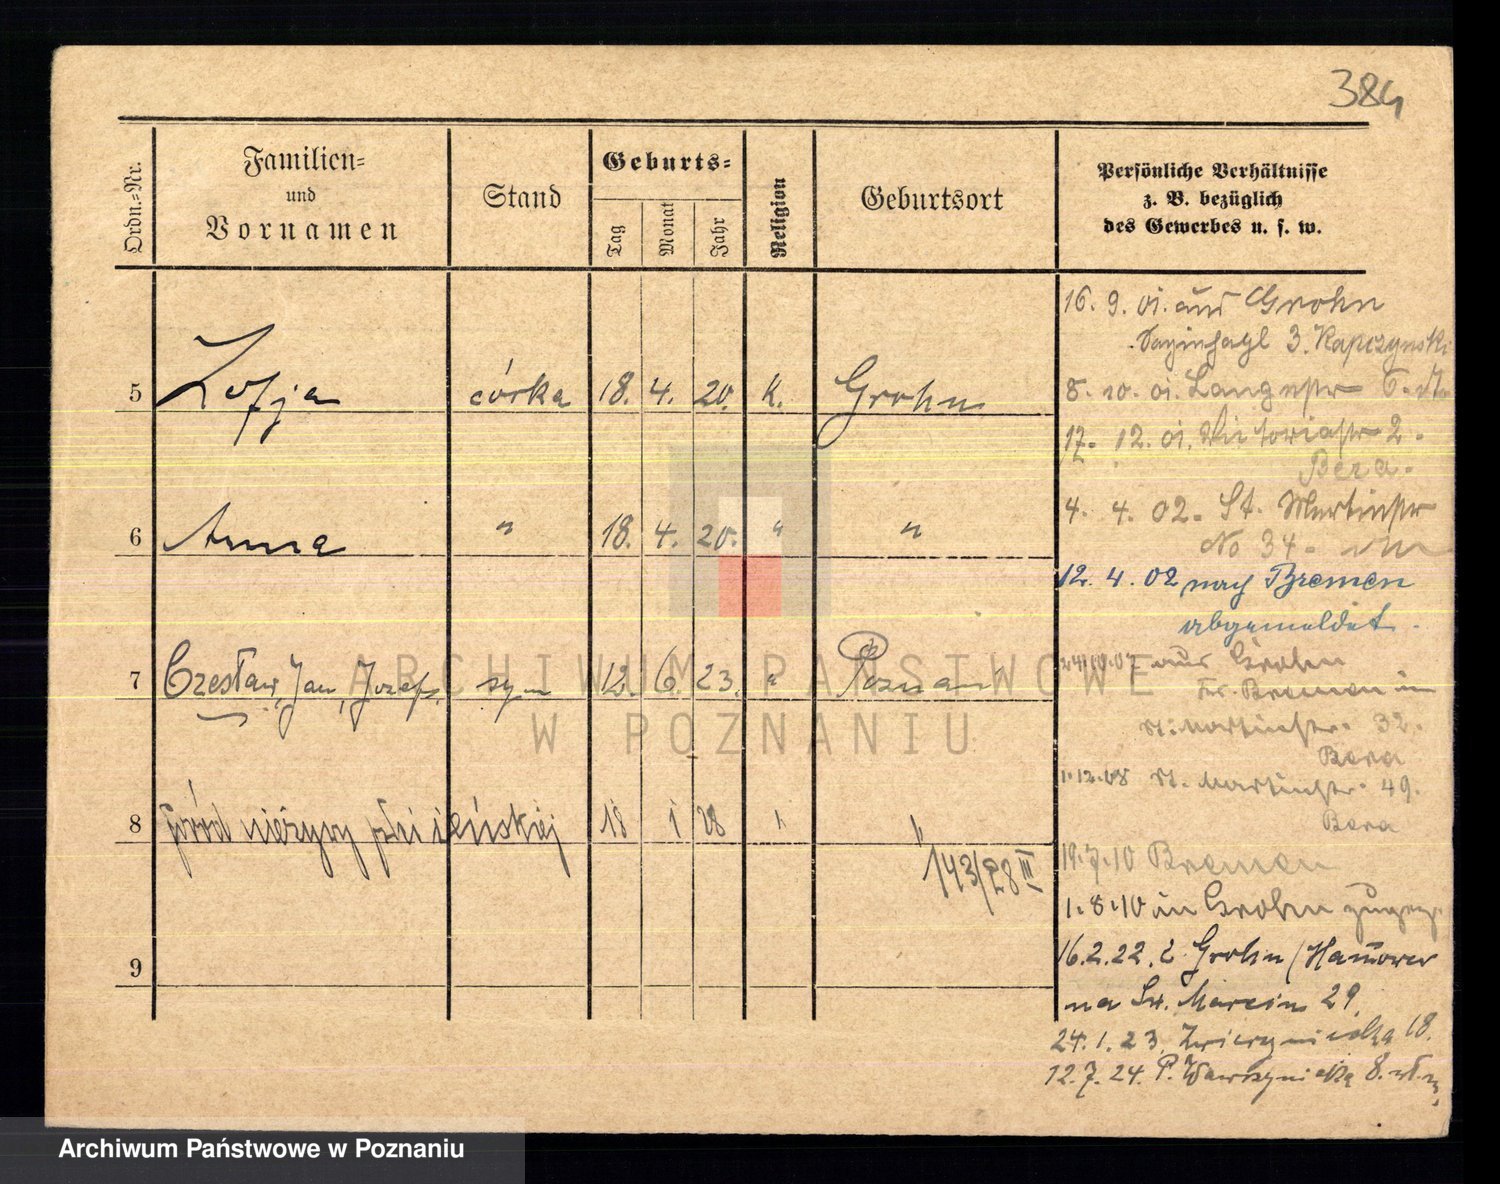 384
Ordn.=Nr.
Familien=
und
Vornamen
Stand
Geburts=
Tag
Monat
Jahr
Religion
Geburtsort
Persönliche Verhältnisse
z. B. bezüglich
des Gewerbes u. s. w.
5 Zofja córka 18. 4. 20. k. Grohn
6 Anna " 18. 4. 20. " "
7 Czesław, Jan, Józef syn 12. 6. 23. " Poznań
8 płód nieżywy płci żeńskiej 18 1 28 " "
143/28 III
9
16. 9. 01. aus Grohn
3. Kapczynski
8. 10. 01. Langestr 6.
17. 12. 01. Victoriastr 2.
Bera.
4. 4. 02. St. Martinstr
No 34.
12. 4. 02 nach Bremen
abgemeldet.
24.10.07 aus Grohn
Kr. Bremen in
St. Martinstr. 32.
Bera
1.12.08 St. Martinstr. 49.
Bera
19.7.10 Bremen
1.8.10 in Grohn
16.2.22. z Grohn (Hannower
na Św. Marcin 29.
24.1.23. Zwierzyniecka 18.
12.7.24. P. Wawrzyniaka 8.
ARCHIWUM PAŃSTWOWE
W POZNANIU
Archiwum Państwowe w Poznaniu